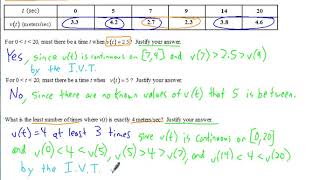 t (sec) 0 5 7 9 14 20
v(t) (meters/sec) 3.3 4.2 2.7 2.3 3.8 4.6
For 0 < t < 20, must there be a time t when v(t) = 2.5? Justify your answer.
Yes, since v(t) is continuous on [7,9] and v(7) > 2.5 > v(9)
by the I.V.T.
For 0 < t < 20, must there be a time t when v(t) = 5 ? Justify your answer.
No, Since there are no known values of that 5 is between.
What is the least number of times where v(t) is exactly 4 meters/sec? Justify your answer.
v(t)=4 at least 3 times give v(t) is continuous on [0,20]
and v(0)<4<v(5), v(5)>4>v(7), and v(14)<4<v(20)
by the I.V.T.